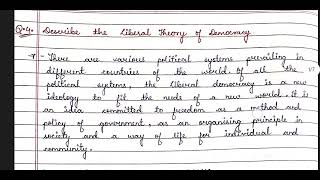 Q.4. Describe the Liberal Theory of Democracy
→ - There are various political systems prevailing in
different countries of the world. Of all the
political systems, the Liberal democracy is a new
ideology to fit the needs of a new world. It is
an idea committed to freedom as a method and
policy of government, as an organising principle in
society and a way of life for individual and
community.